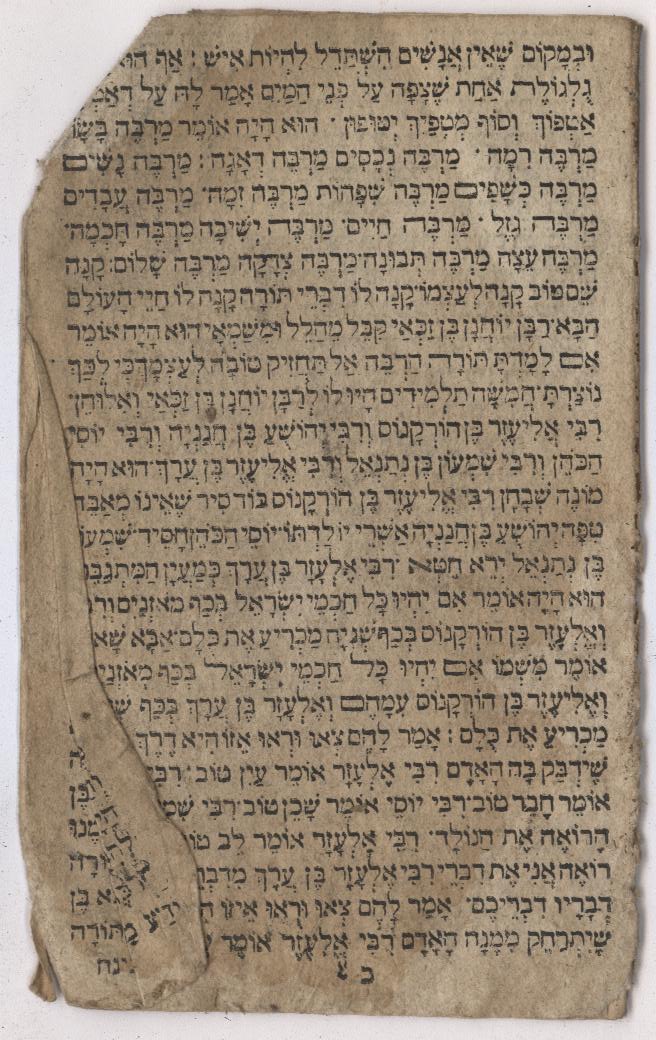 ובמקום שאין אנשים השתדל להיות איש : אף הוא
גלגולת אחת שצפה על פני המים אמר לה על דאט
אטפוך וסוף מטפיך יטופון · הוא היה אומר מרבה בשר
מרבה רמה · מרבה נכסים מרבה דאגה : מרבה נשים
מרבה כשפים מרבה שפחות מרבה זמה · מרבה עבדים
מרבה גזל · מרבה חיים · מרבה ישיבה מרבה חכמה ·
מרבה עצה מרבה תבונה · מרבה צדקה מרבה שלום : קנה
שם טוב קנה לעצמו · קנה לו דברי תורה קנה לו חיי העולם
הבא · רבן יוחנן בן זכאי קבל מהלל ומשמאי הוא היה אומר
אם למדת תורה הרבה אל תחזיק טובה לעצמך כי לכך
נוצרת · חמשה תלמידים היו לו לרבן יוחנן בן זכאי ואלו הן ·
רבי אליעזר בן הורקנוס ורבי יהושע בן חנניה ורבי יוסי
הכהן ורבי שמעון בן נתנאל ורבי אליעזר בן ערך · הוא היה
מונה שבחן רבי אליעזר בן הורקנוס בור סיד שאינו מאבד
טפה יהושע בן חנניה אשרי יולדתו · יוסי הכהן חסיד · שמעו
בן נתנאל ירא חטא · רבי אלעזר בן ערך כמעין המתגבר
הוא היה אומר אם יהיו כל חכמי ישראל בכף מאזנים ור
ואלעזר בן הורקנוס בכף שניה מכריע את כלם · אבא שא
אומר משמו אם יהיו כל חכמי ישראל בכף מאזני
ואליעזר בן הורקנוס עמהם ואלעזר בן ערך בכף ש
מכריע את כולם : אמר להם צאו וראו אזו היא דרך
שידבק בה האדם רבי אלעזר אומר עין טוב · רבי
אומר חבר טוב · רבי יוסי אומר שכן טוב · רבי שמ
הרואה את הנולד · רבי אלעזר אומר לב טו
רואה אני את דברי רבי אלעזר בן ערך מדבר
דבריו דבריכם · אמר להם צאו וראו איזו ה
שיתרחק ממנה האדם רבי אלעזר אומר
ב